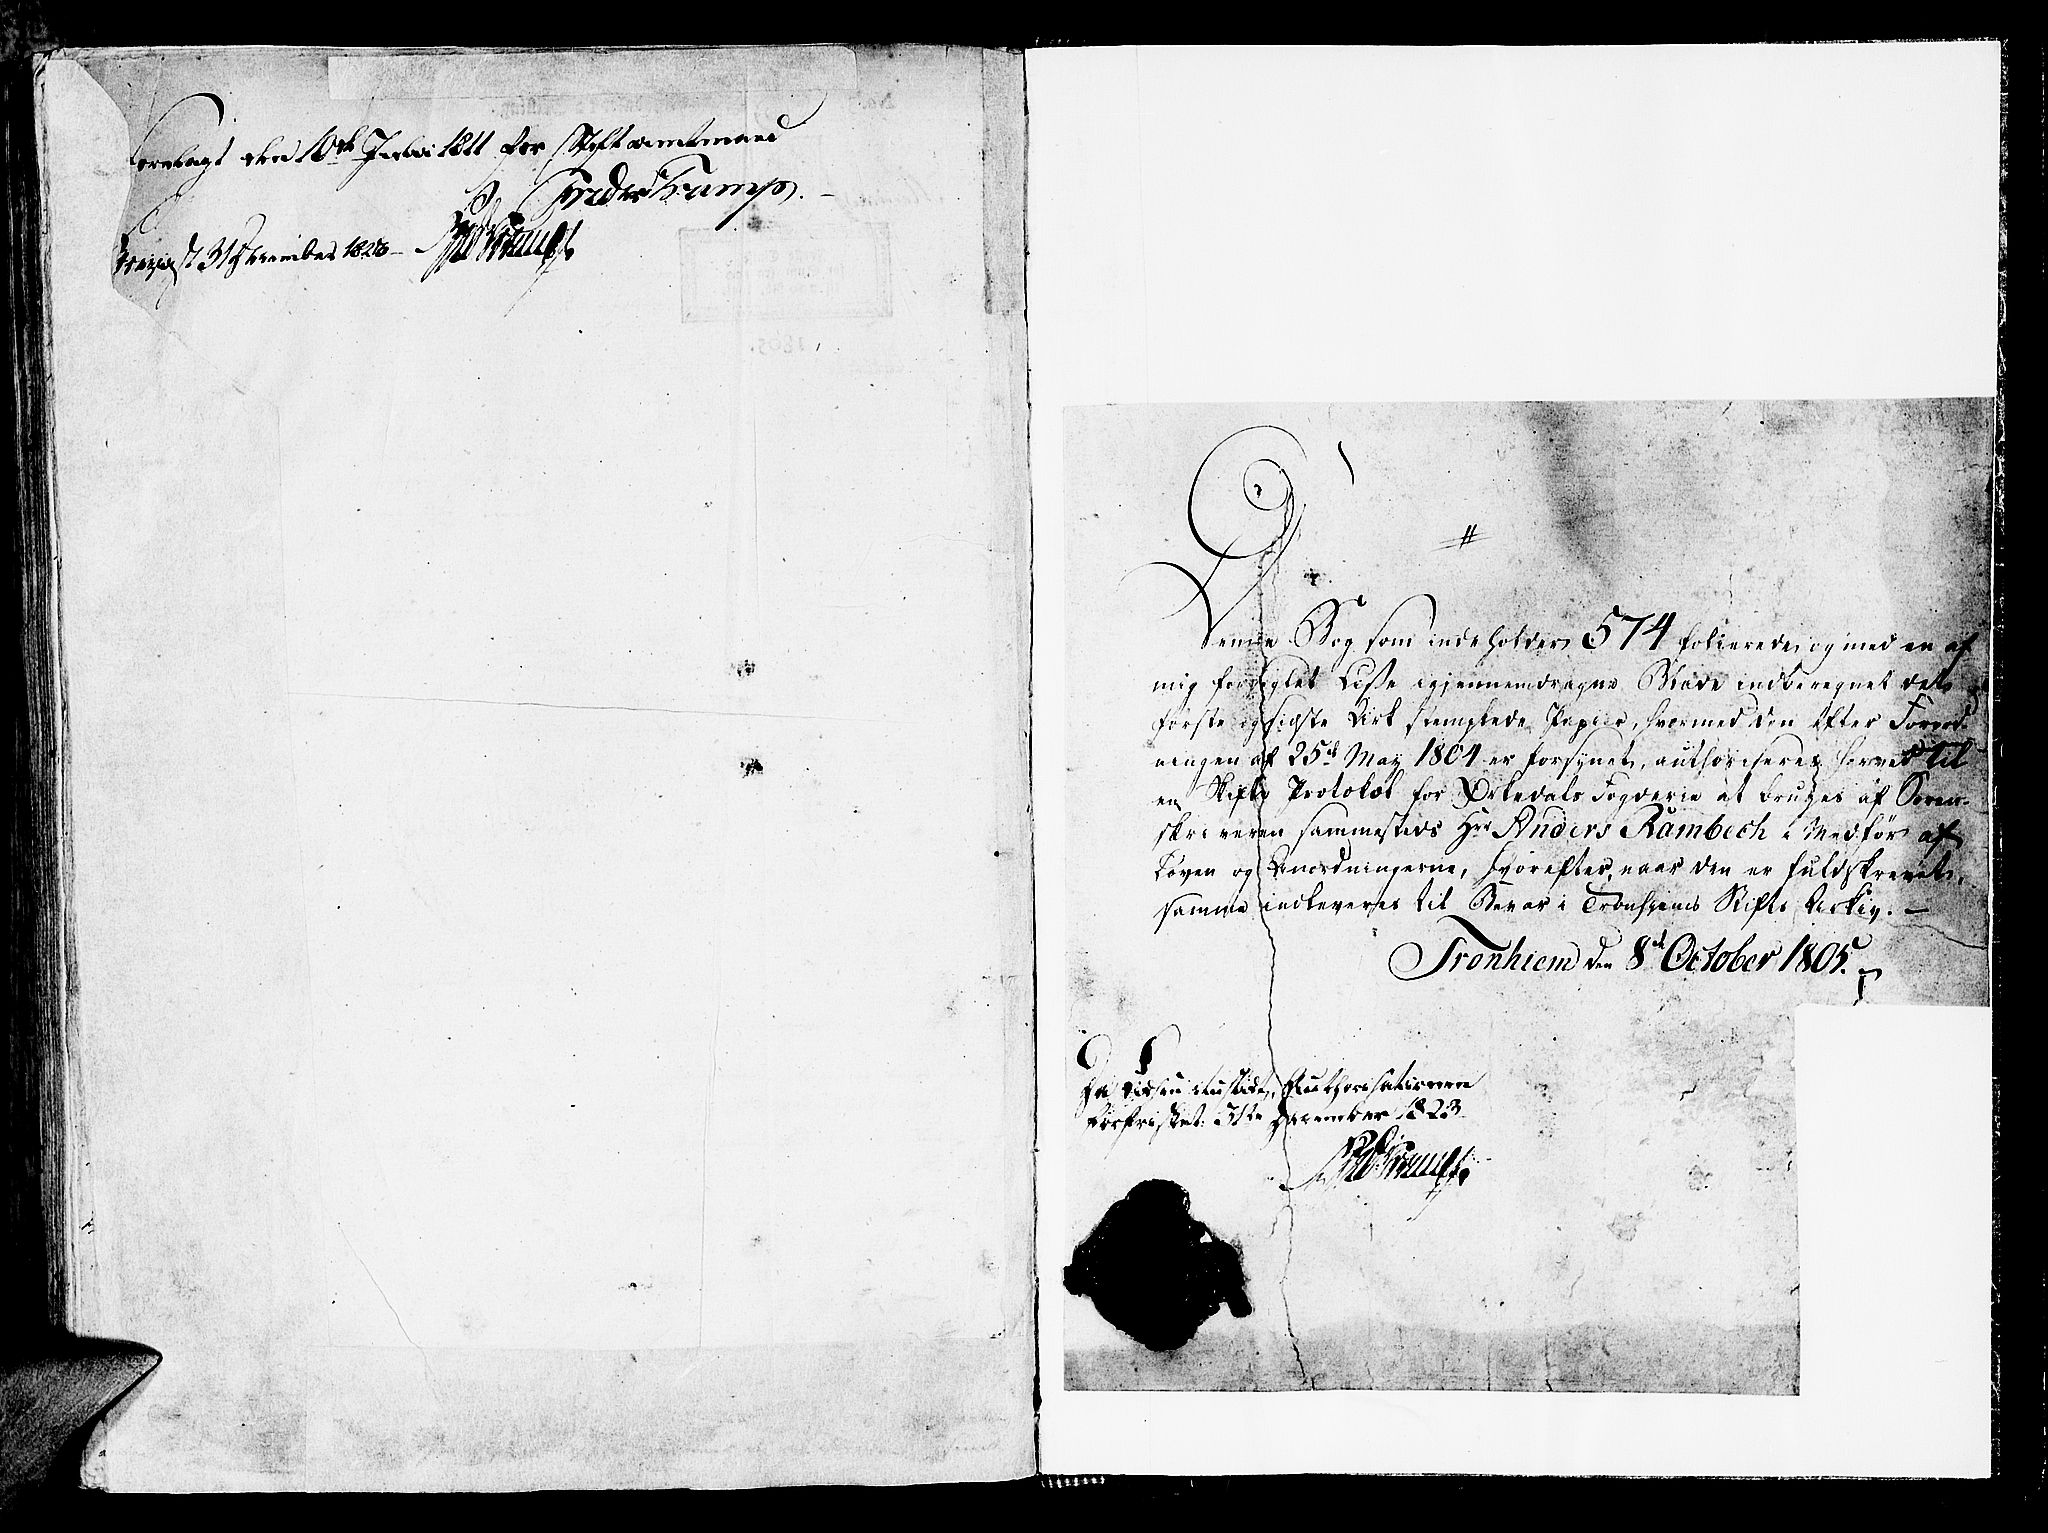 Forelagt den 10de Julii 1811 for Stiftamtmand
Freder Trampe.
31 December 1823
FTrampe
#
Denne Bog som indeholder 574 folierede og med en af
mig forseglet Lisse igjennemdragne Blade indberegnet det
første og sidste Ark stemplede Papiir, hvormed den efter Forord-
ningen af 25de May 1804 er forsynet, authoriseres herved til
en Skifte Protokol for Ørkedals Fogderie at bruges af Soren-
skriveren sammesteds Hrr Anders Rambech i Medfør af
Loven og Anordningerne, hvorefter, naar den er fuldskrevet,
samme indleveres til Bevar i Tronhiems Stifts Arkiv. —
Tronhiem den 8de October 1805.
Authorisationen
Forfristet. 31te December 1823
FTrampe